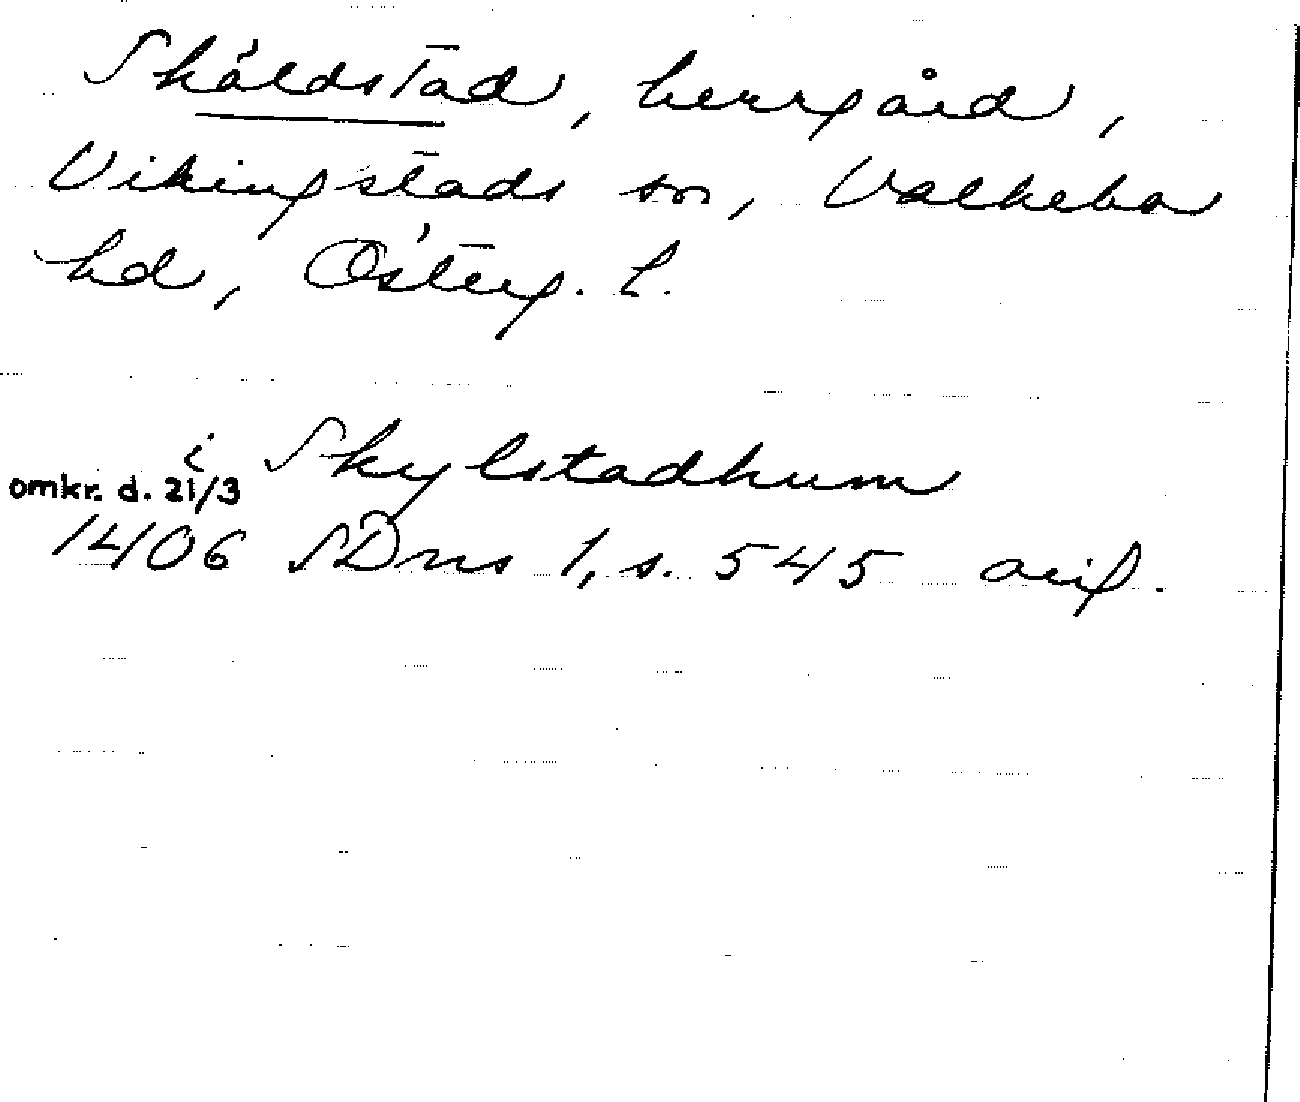 Skäldstad, herrgård,
Vikingstads sn, Valkebo
hd, Österg. l.
i Skylstadhum
omkr. d. 21/3
1406 SDns 1, s. 545 avig.